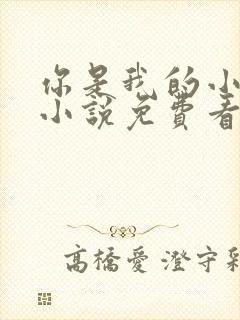 你是我的小
小說免費看
高橋愛 澄守彩